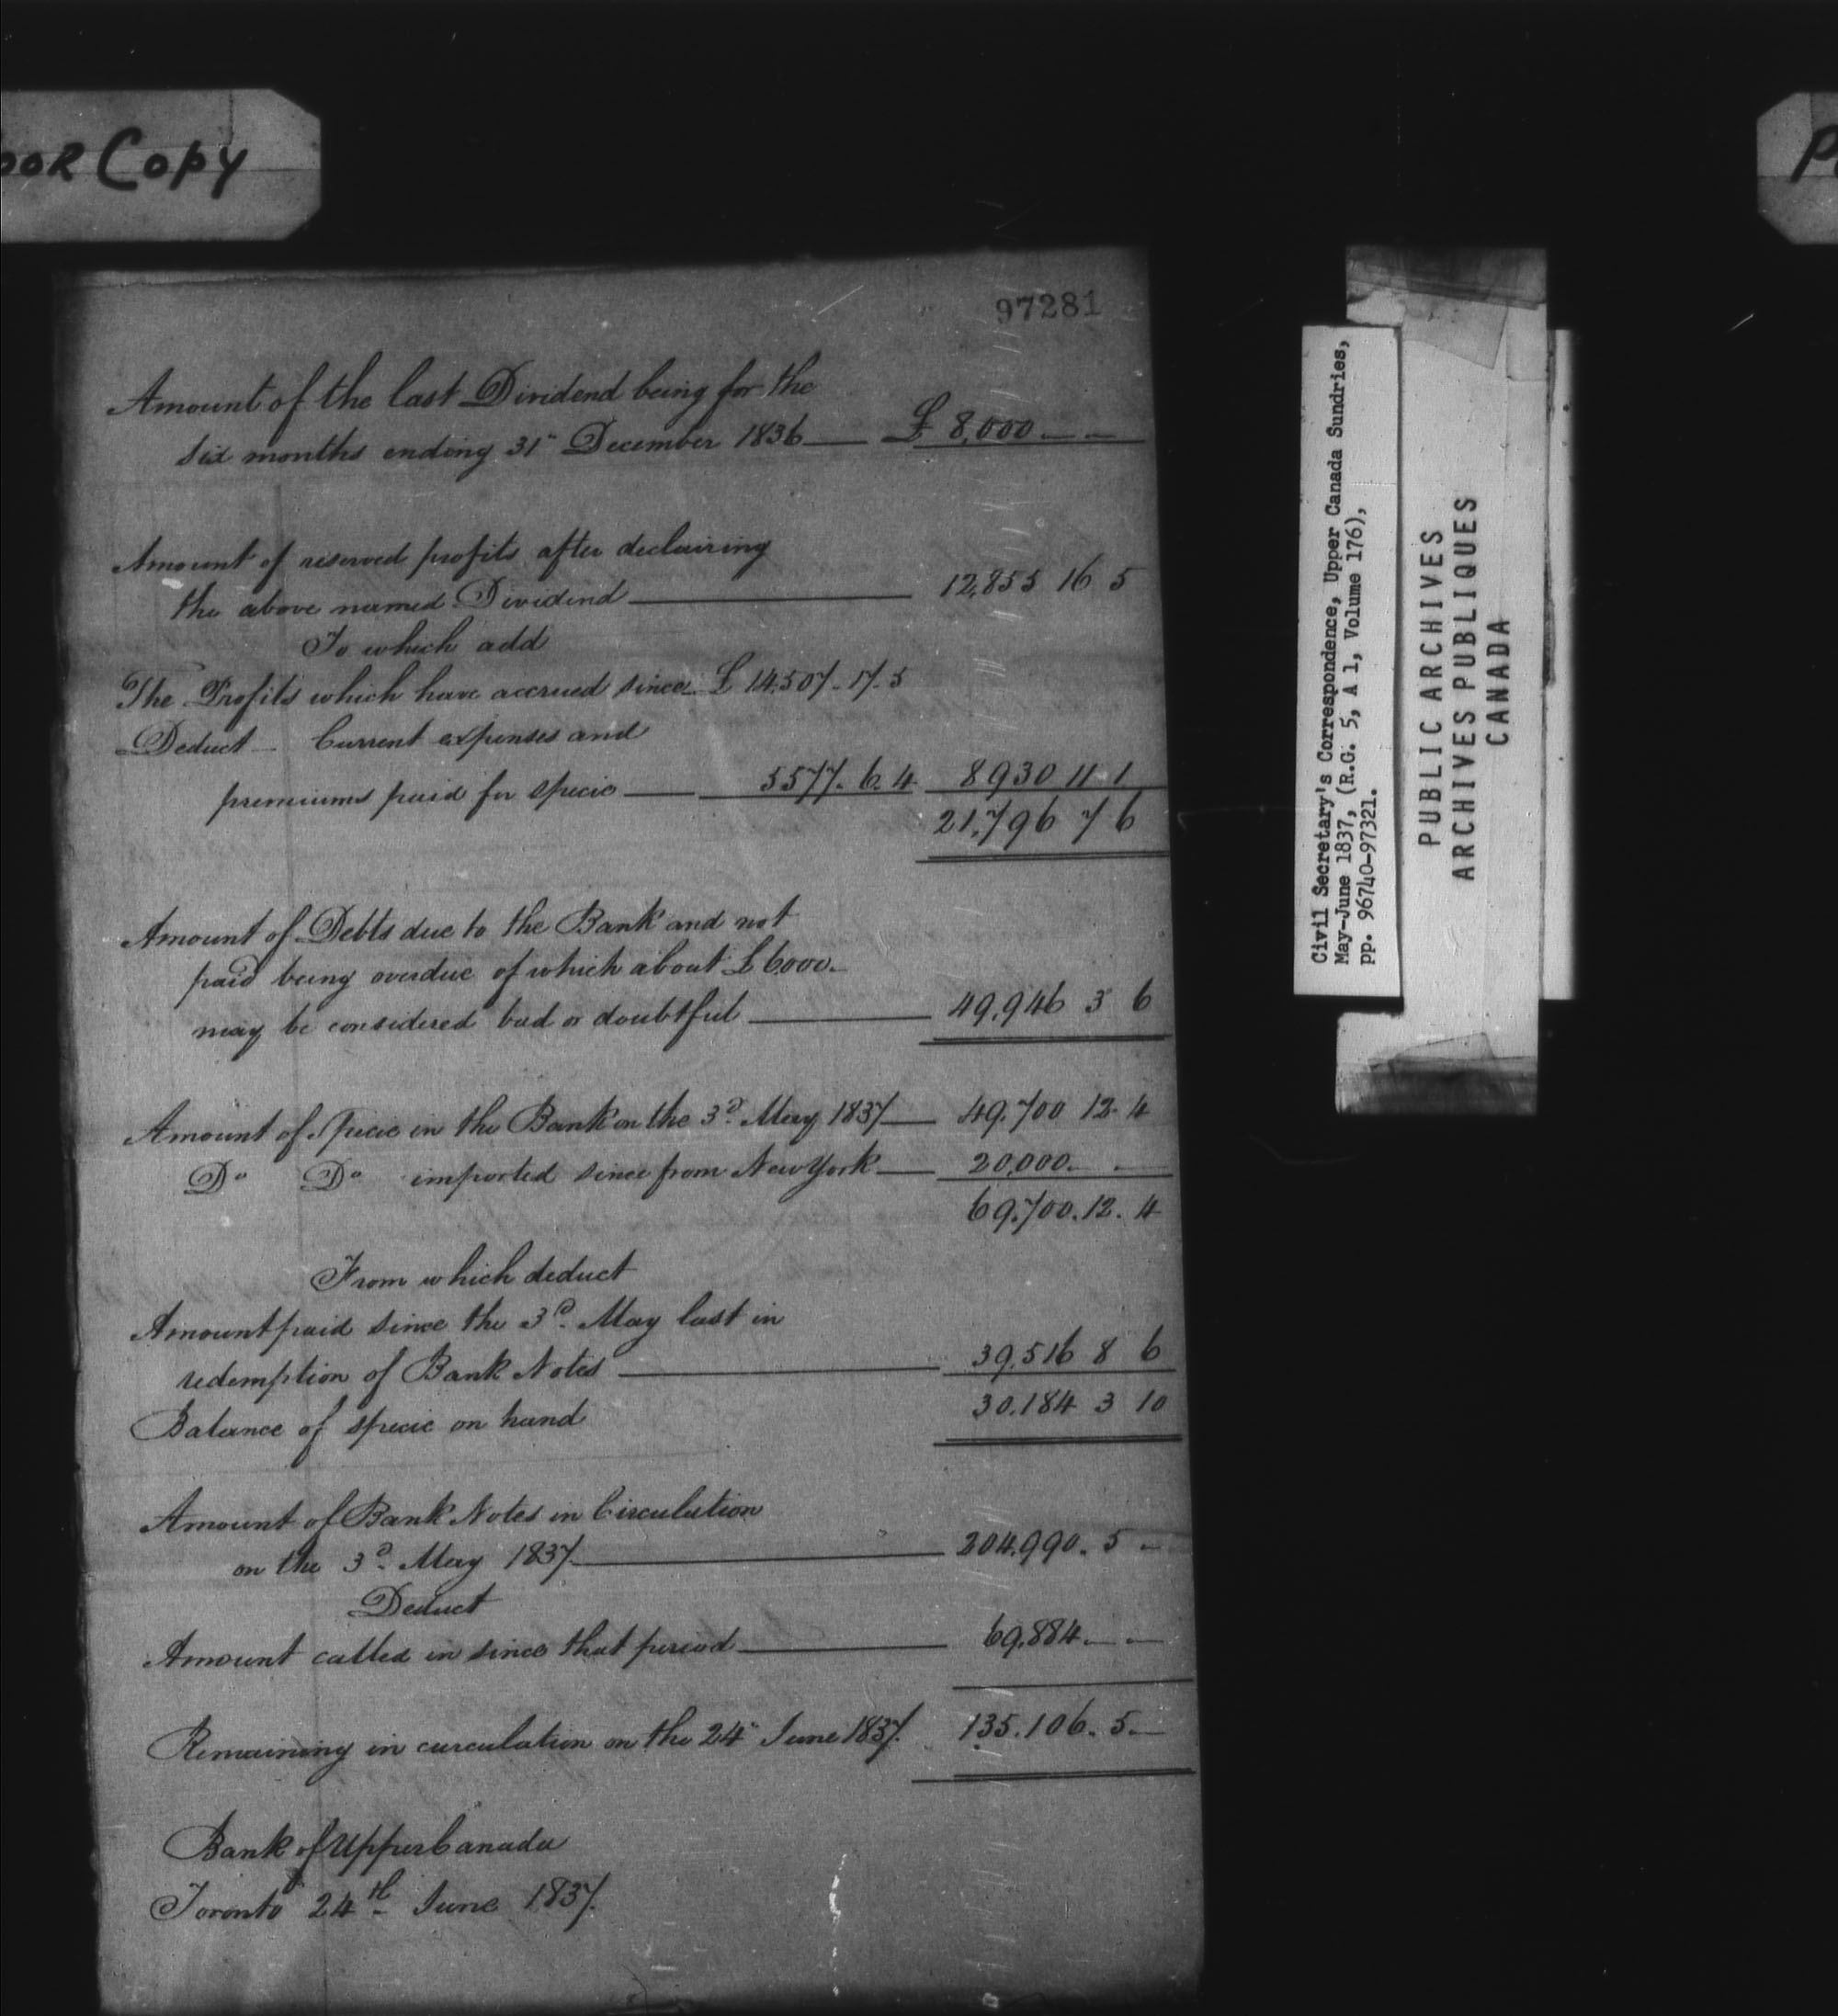 OOR COPY
P
97281
Amount of the last Dividend being for the
six months ending 31st December 1836 — £ 8,000 — —
Amount of reserved profits after declairing
the above named Dividend — 12,855 16 5
To which add
The Profits which have accrued since £ 14.507 - 17 - 5
Deduct — Current expenses and
premiums paid for specie — 5577. 6. 4 8930 11 1
21,796 7 6
Amount of Debts due to the Bank and not
paid being overdue of which about £ 6000 —
may be considered bad or doubtful — 49,946 3 6
Amount of Specie in the Bank on the 3d. May 1837 — 49.700 12. 4
Do Do imported since from New York — 20,000. —
69.700. 12. 4
From which deduct
Amount paid since the 3d. May last in
redemption of Bank Notes — 39.516 8 6
Balance of specie on hand 30.184 3 10
Amount of Bank Notes in Circulation
on the 3d. May 1837 — 204.990. 5 —
Deduct
Amount called in since that period — 69.884. — —
Remaining in curculation on the 24th June 1837. 135.106. 5. —
Bank of Upper Canada
Toronto 24th June 1837.
Civil Secretary's Correspondence, Upper Canada Sundries,
May-June 1837, (R.G. 5, A 1, Volume 176),
pp. 96740-97321.
PUBLIC ARCHIVES
ARCHIVES PUBLIQUES
CANADA